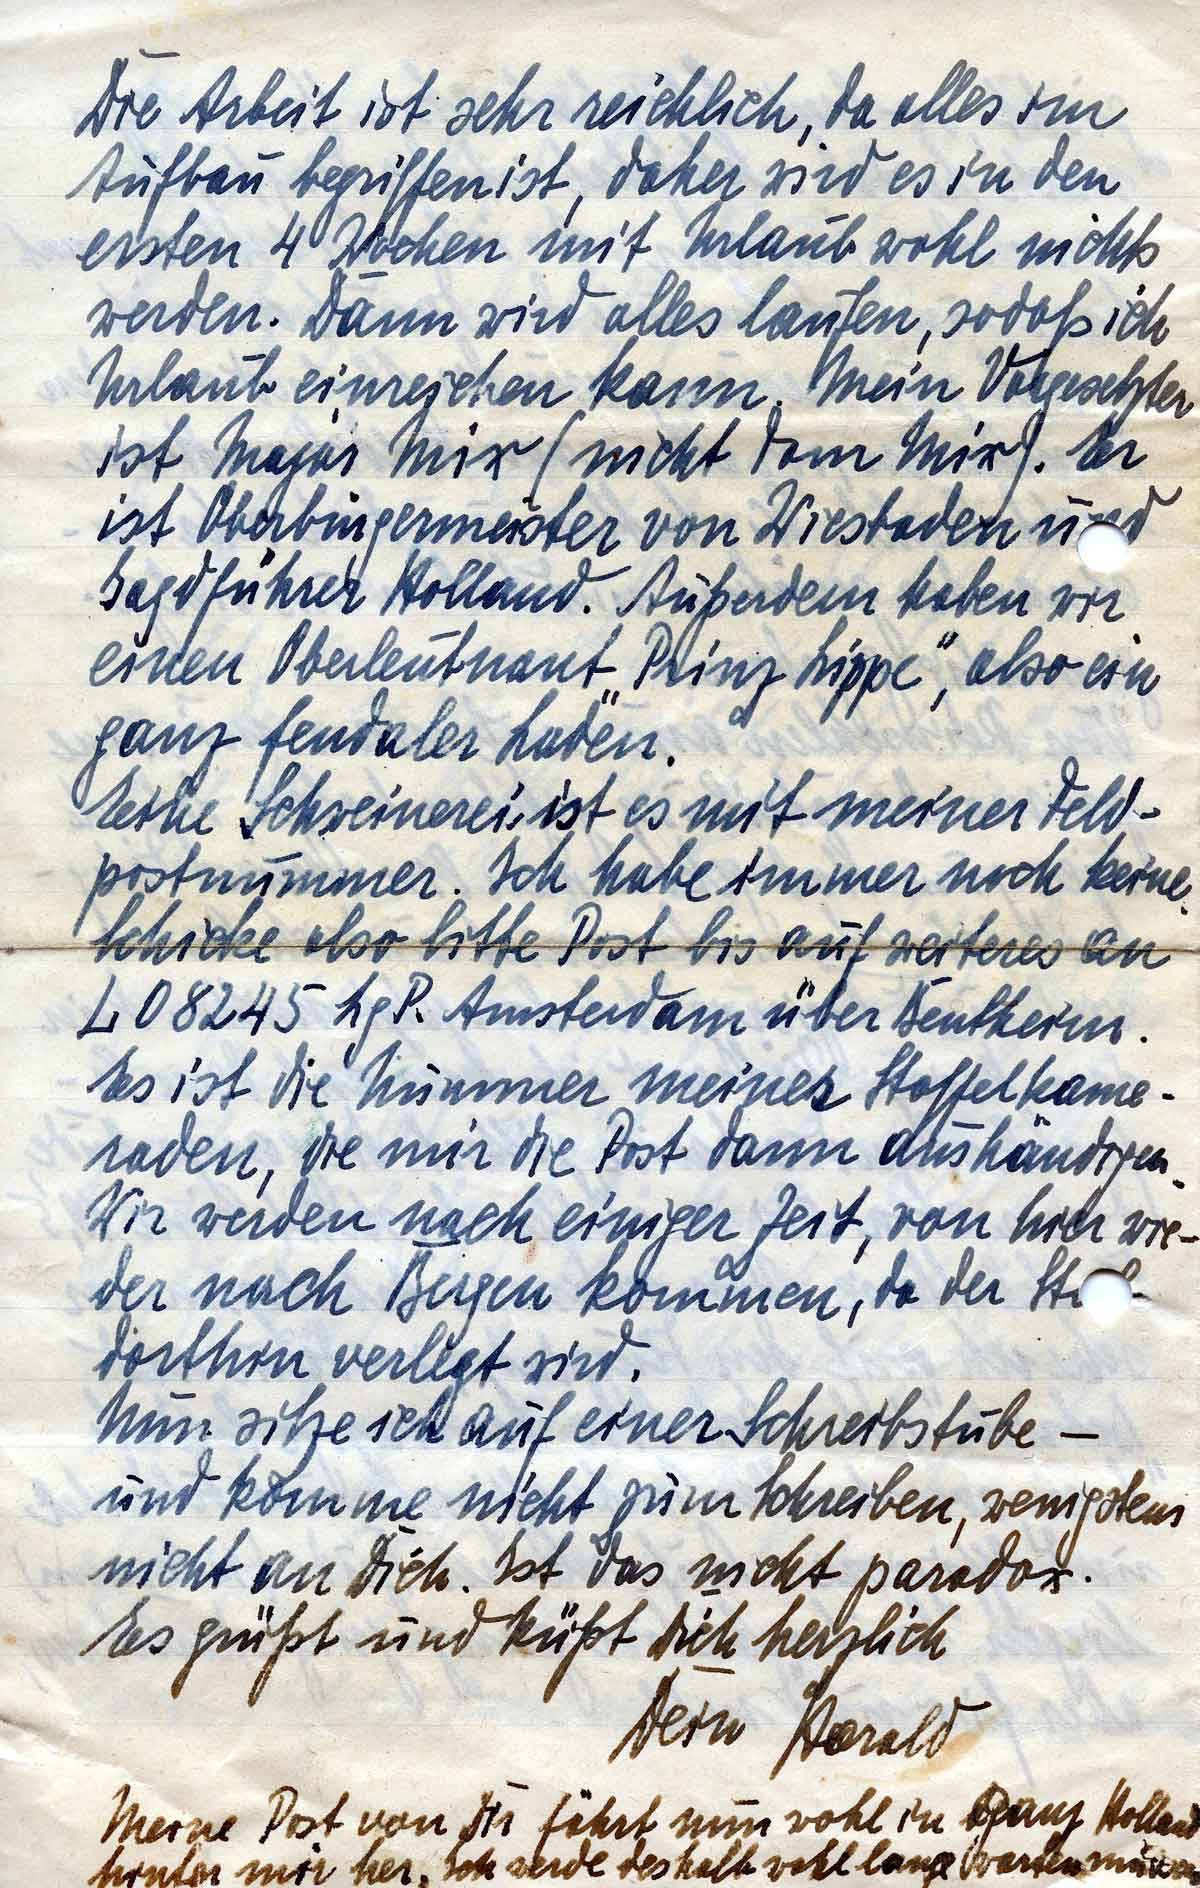 Die Arbeit ist sehr reichlich, da alles im
Aufbau begriffen ist, daher wird es in den
ersten 4 Wochen mit Urlaub wohl nichts
werden. Dann wird alles laufen, sodaß ich
Urlaub einreichen kann. Mein Vorgesetzter
ist Major Mix (nicht Tom Mix). Er
ist Oberbürgermeister von Wiesbaden und
Jagdführer Holland. Außerdem haben wir
einen Oberleutnant „Prinz Lippe“, also ein
ganz feudaler Laden.
Eine Schweinerei ist es mit meiner Feld-
postnummer. Ich habe immer noch keine.
Schicke also bitte Post bis auf weiteres an
L 08245 LgP. Amsterdam über Bentheim.
Es ist die Nummer meiner Staffelkame-
raden, die mir die Post dann aushändigen.
Wir werden nach einiger Zeit, von hier wie-
der nach Bergen kommen, da der
dorthin verlegt wird.
Nun sitze ich auf einer Schreibstube —
und komme nicht zum Schreiben, wenigstens
nicht an Dich. Ist das nicht paradox.
Es grüßt und küßt Dich herzlich
Dein Harald
Meine Post von Dir fährt nun wohl in ganz Holland
hinter mir her. Ich werde deshalb wohl lange warten müssen